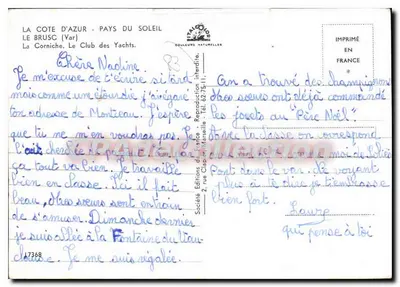 LA COTE D'AZUR - PAYS DU SOLEIL
LE BRUSC (Var)
La Corniche. Le Club des Yachts.
COULEURS NATURELLES
IMPRIMÉ
EN
FRANCE
Chère Nadine
Je m'excuse de t'écrire si tard
mais comme une étourdie j'ai égaré
ton adresse de Monteau. J'espère
que tu ne m'en voudras pas. Je
ça tout va bien. Je travaille
bien en classe. Ici il fait
beau, Mes sœurs sont entrain
de s'amuser. Dimanche dernier
je suis allée à la Fontaine du Vau-
cluse. Je me suis régalée.
On a trouvé des champignons
Mes sœurs ont déjà commandé
les jouets au "Père Noël"
Avec la classe on correspond
dans le var. Ne voyant
plus à te dire je t'embrasse
bien fort.
Laure
qui pense à toi
Société Éditions de France - Reproduction interdite.
17368